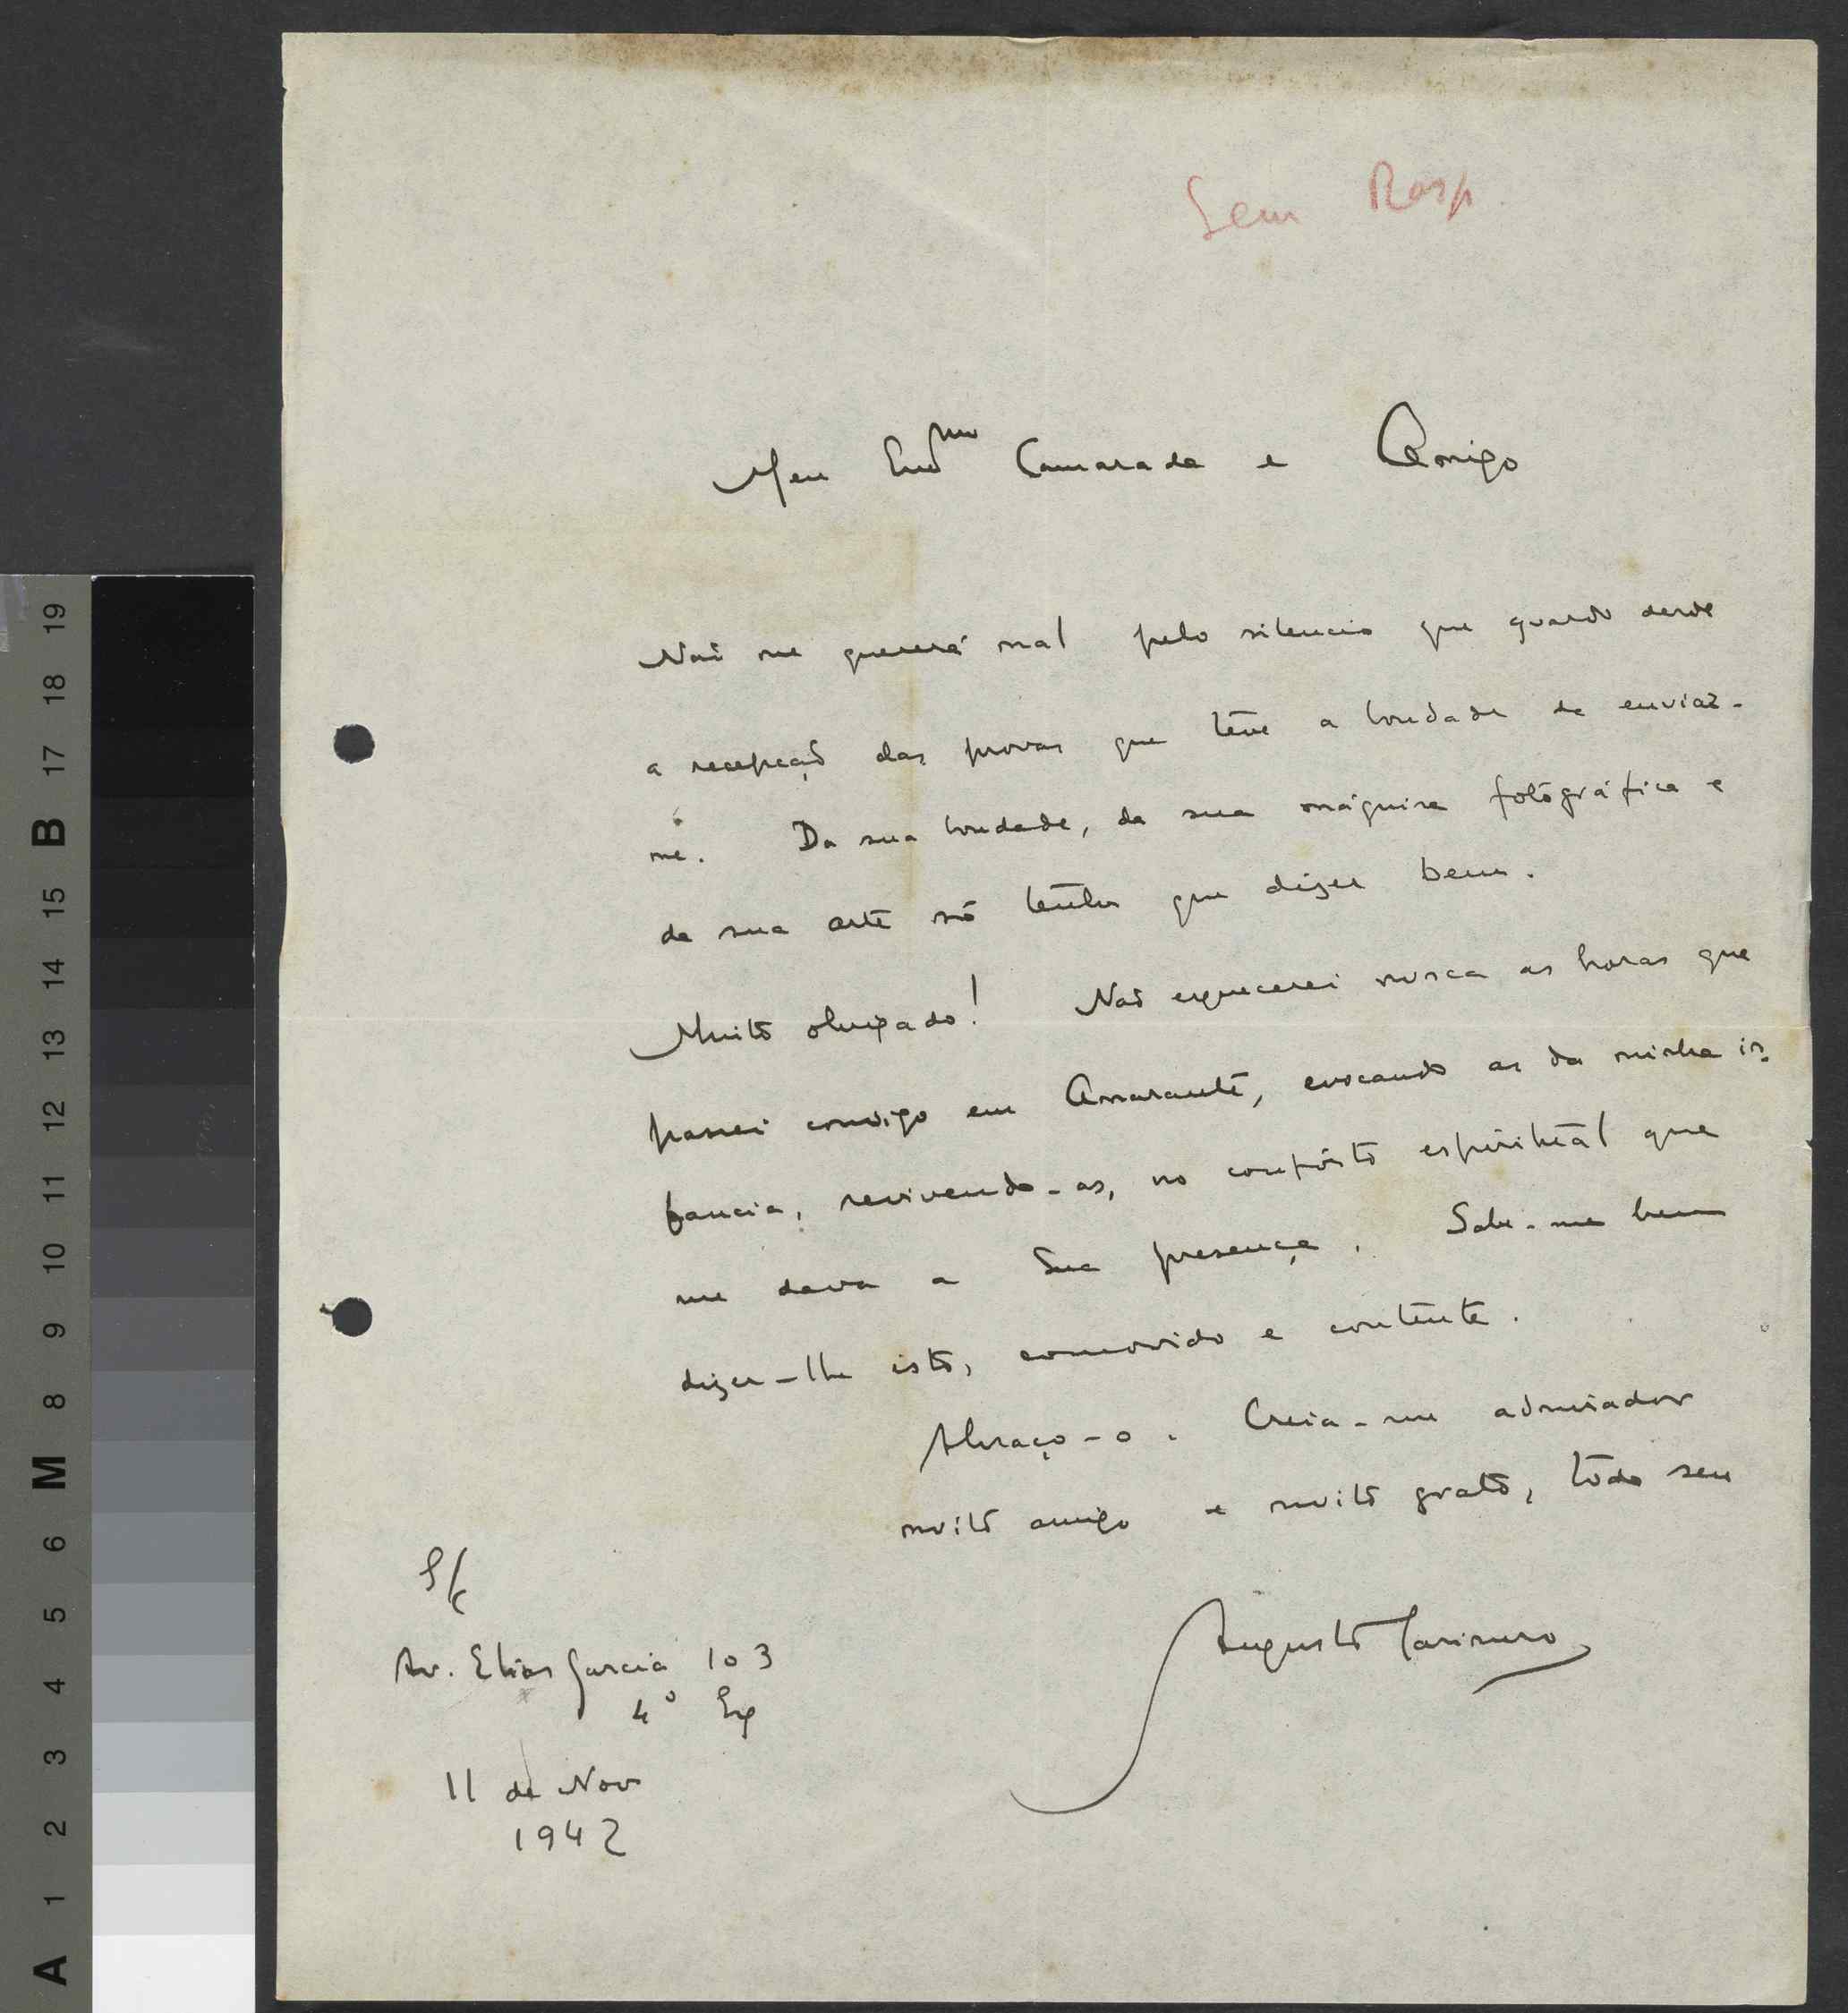 Sem Resp.
Meu Emd^mo Camarada e Amigo
Não me quererá mal pelo silencio que guardo desde
a recepção das provas que teve a bondade de enviar-
me. Da sua bondade, da sua máquina fotográfica e
da sua arte só tenho que dizer bem.
Muito obrigado! Não esquecerei nunca as horas que
passei comsigo em Amarante, evocando as da minha in-
fancia, revivendo-as, no confôrto espiritual que
me dava a Sua presença. Sabe-me bem
dizer-lhe isto, comovido e contente.
Abraço-o. Creia-me admirador
muito amigo e muito grato, todo seu
Augusto Casimiro
S/c
Av. Elias Garcia 103
4º Esq
11 de Nov
1942
A 1 2 3 4 5 6 M 8 9 10 11 12 13 14 15 B 17 18 19